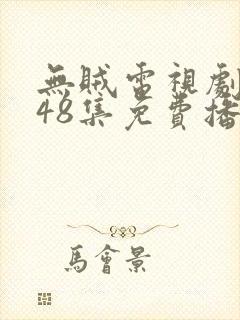 無賊電視劇
48集免費播
馬會景